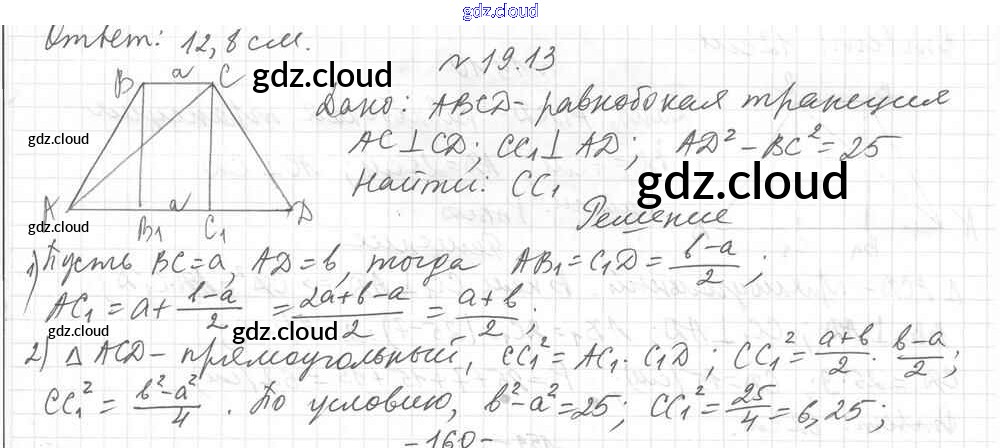 gdz.cloud
Ответ: 12,8 см.
№19.13
B a C
gdz.cloud
Дано: ABCD - равнобокая трапеция
gdz.cloud
AC⊥CD; CC₁⊥AD; AD² - BC² = 25
Найти: CC₁
gdz.cloud
A a D
B₁ C₁
Решение
1) Пусть BC=a, AD=b, тогда AB₁=C₁D= (b-a)/2;
AC₁ = a + (b-a)/2 = (2a+b-a)/2 = (a+b)/2;
gdz.cloud
gdz.cloud
2) △ACD - прямоугольный, CC₁² = AC₁·C₁D; CC₁² = (a+b)/2 · (b-a)/2;
CC₁² = (b²-a²)/4. По условию, b²-a²=25; CC₁² = 25/4 = 6,25;
-160-